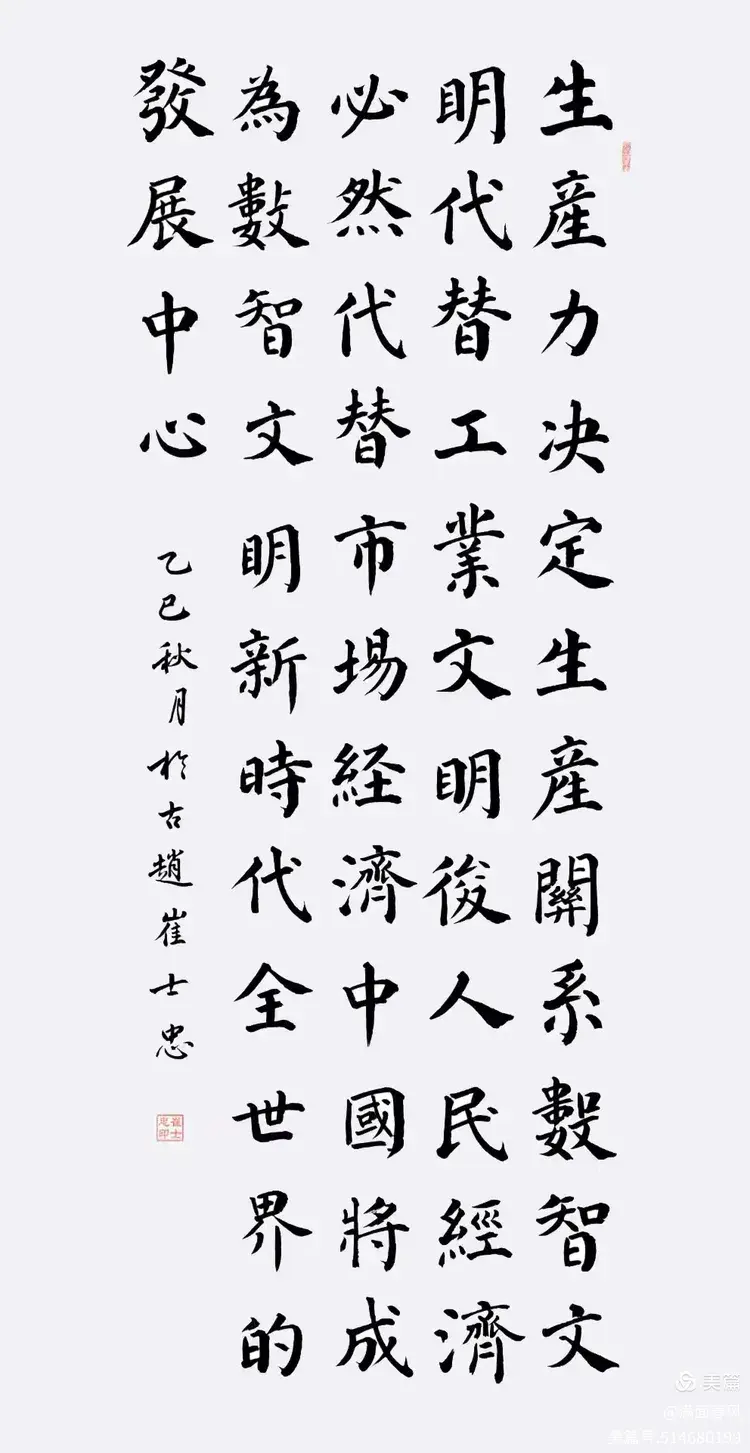 生産力决定生産關系數智文
明代替工業文明後人民經濟
必然代替市場経濟中國將成
為數智文明新時代全世界的
發展中心
乙巳秋月於古趙崔士忠
崔士忠印
美篇
美篇号:514680193